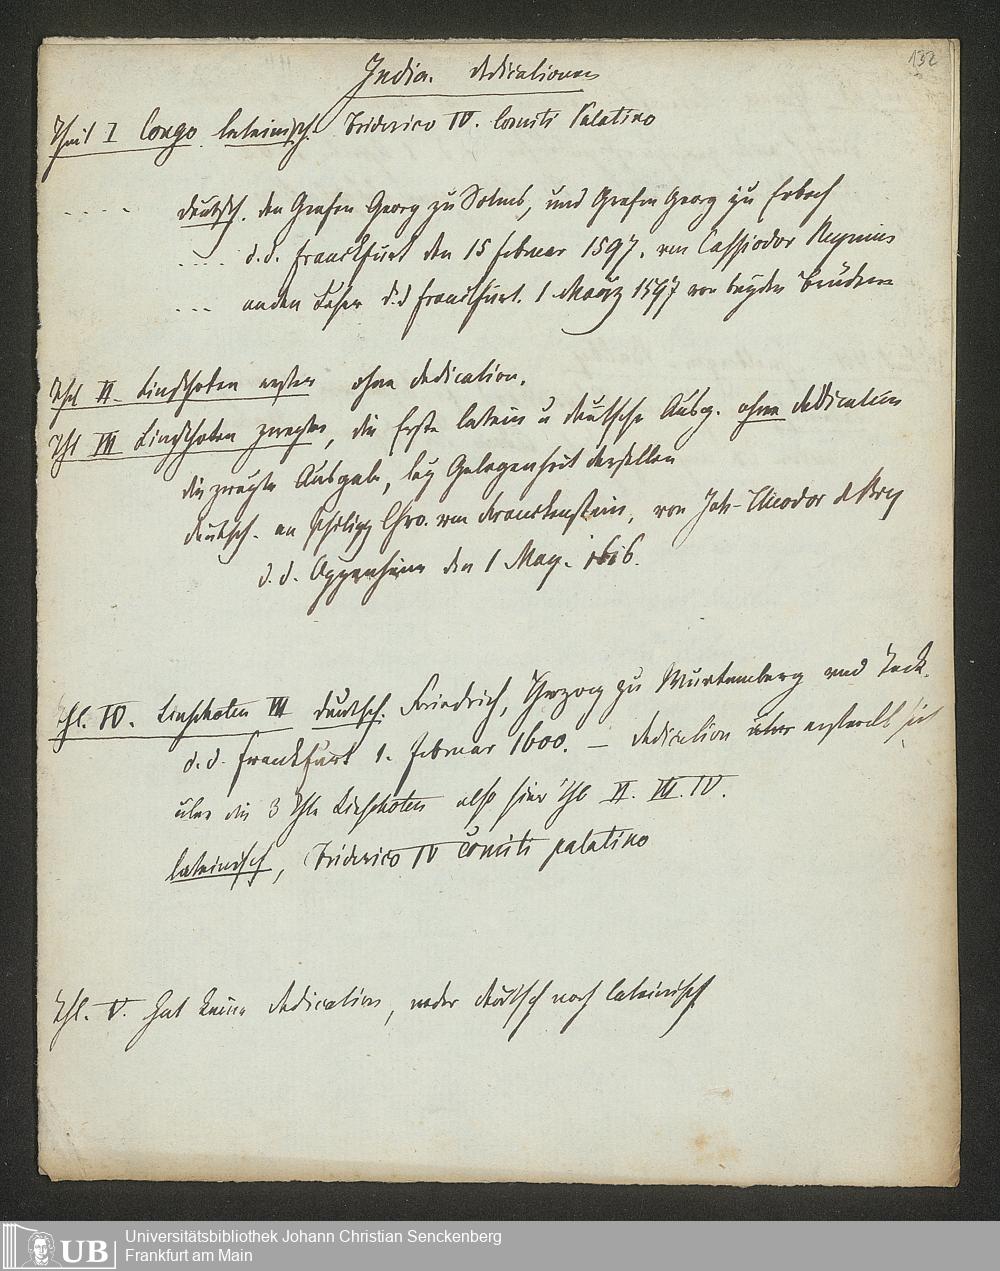 132
India. Dedicationen
Theil I Congo lateinisch. Friderico IV. Comiti Palatino
.... deutsch. den Grafen Georg zu Solms, und Grafen Georg zu Erbach
.... d.d. Franckfurt den 15 Februar 1597. von Cassiodor Reynius
... an den Leser d.d Franckfurt. 1 Maerz 1597 von beyden Brüdern
Thl II. Linschoten erster ohne Dedication.
Thl III Linschoten zweyter, die Erste latein u deutsche Ausg. ohne Dedication
die zweyte Ausgabe, bey Gelegenheit derselben
deutsch. an Philipp Chro. von Franckenstein, von Joh-Theodor de Bry
d.d. Oppenheim den 1 May. 1616.
Thl. IV. Linschoten III deutsch. Friedrich, Herzog zu Wurtemberg und Teck.
d.d. Franckfurt 1. Februar 1600. – Dedication erstreckt sich
über die 3 Thle Linschoten also hier Thl II. III. IV.
lateinisch, Friderico IV Comiti palatino
Thl. V. hat keine Dedication, weder deutsch noch lateinisch
UB
Universitätsbibliothek Johann Christian Senckenberg
Frankfurt am Main